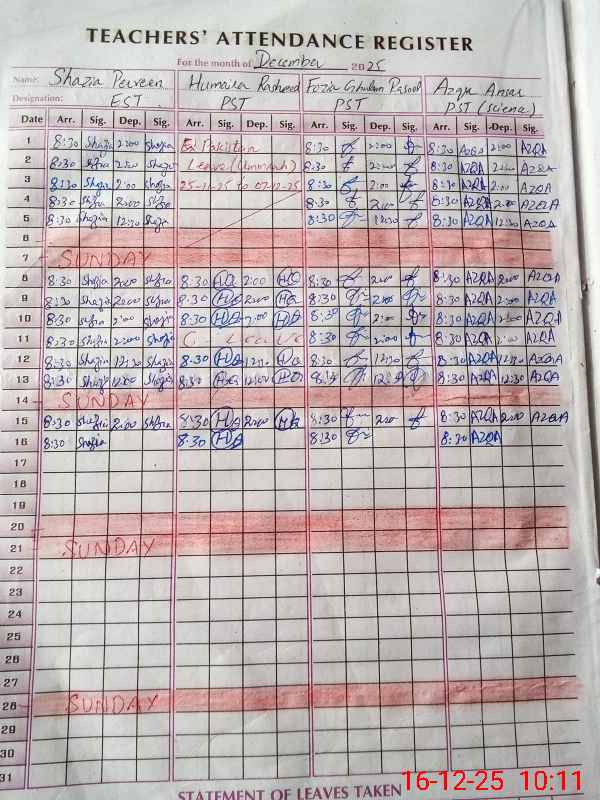 TEACHERS' ATTENDANCE REGISTER
For the month of December 2025
Name: Shazia Perveen Humaira Rasheed Fozia Ghulam Rasool Azqa Ansar
Designation: EST PST PST PST (science)
Date Arr. Sig. Dep. Sig. Arr. Sig. Dep. Sig. Arr. Sig. Dep. Sig. Arr. Sig. Dep. Sig.
1 8:30 Shazia 2:00 Shazia Ex Pakistan 8:30 2:00 8:30 AZQA 2:00 AZQA
2 8:30 Shazia 2:00 Shazia Leave (Ummrah) 8:30 2:00 8:30 AZQA 2:00 AZQA
3 8:30 Shazia 2:00 Shazia 25-11-25 to 07-12-25 8:30 2:00 8:30 AZQA 2:00 AZQA
4 8:30 Shazia 2:00 Shazia 8:30 2:00 8:30 AZQA 2:00 AZQA
5 8:30 Shazia 12:30 Shazia 8:30 12:30 8:30 AZQA 12:30 AZQA
6
7 SUNDAY
8 8:30 Shazia 2:00 Shazia 8:30 HA 2:00 HA 8:30 2:00 8:30 AZQA 2:00 AZQA
9 8:30 Shazia 2:00 Shazia 8:30 HA 2:00 HA 8:30 2:00 8:30 AZQA 2:00 AZQA
10 8:30 Shazia 2:00 Shazia 8:30 HA 2:00 HA 8:30 2:00 8:30 AZQA 2:00 AZQA
11 8:30 Shazia 2:00 Shazia C - Leave 8:30 2:00 8:30 AZQA 2:00 AZQA
12 8:30 Shazia 12:30 Shazia 8:30 HA 12:30 HA 8:30 12:30 8:30 AZQA 12:30 AZQA
13 8:30 Shazia Shazia 8:30 HA HA 8:30 AZQA 12:30 AZQA
14 SUNDAY
15 8:30 Shazia 2:00 Shazia 8:30 HA 2:00 HA 8:30 2:00 8:30 AZQA 2:00 AZQA
16 8:30 Shazia 8:30 HA 8:30 8:30 AZQA
17
18
19
20
21 SUNDAY
22
23
24
25
26
27
28 SUNDAY
29
30
31
STATEMENT OF LEAVES TAKEN
16-12-25 10:11